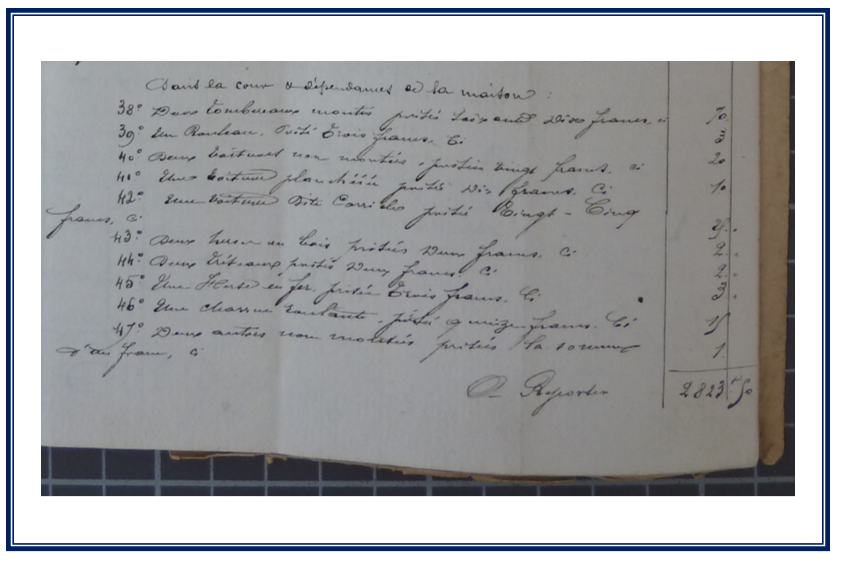 Dans la cour & dépendances de la maison :
38° Deux tombereaux montés prisés soixante Dix francs, ci 70.
39° Un Rouleau, Prisé Trois francs. Ci 3
40° Deux voitures non montées, prisées vingt francs. ci 20
41° Une voiture planchéiée prisée Dix francs. Ci 10
42° Une voiture Dite prisé Vingt-Cinq
francs, ci 25.
43° Deux herses en bois prisées Deux francs. Ci 2.
44° Deux Tréteaux prisés Deux francs. Ci 2.
45° Une Herse en fer, prisée Trois francs. Ci 3.
46° Une charrue roulante, prisé quinze francs. Ci 15
47° Deux autres non montées prisées la somme
d'un franc, ci 1
A Reporter 2823 f 50